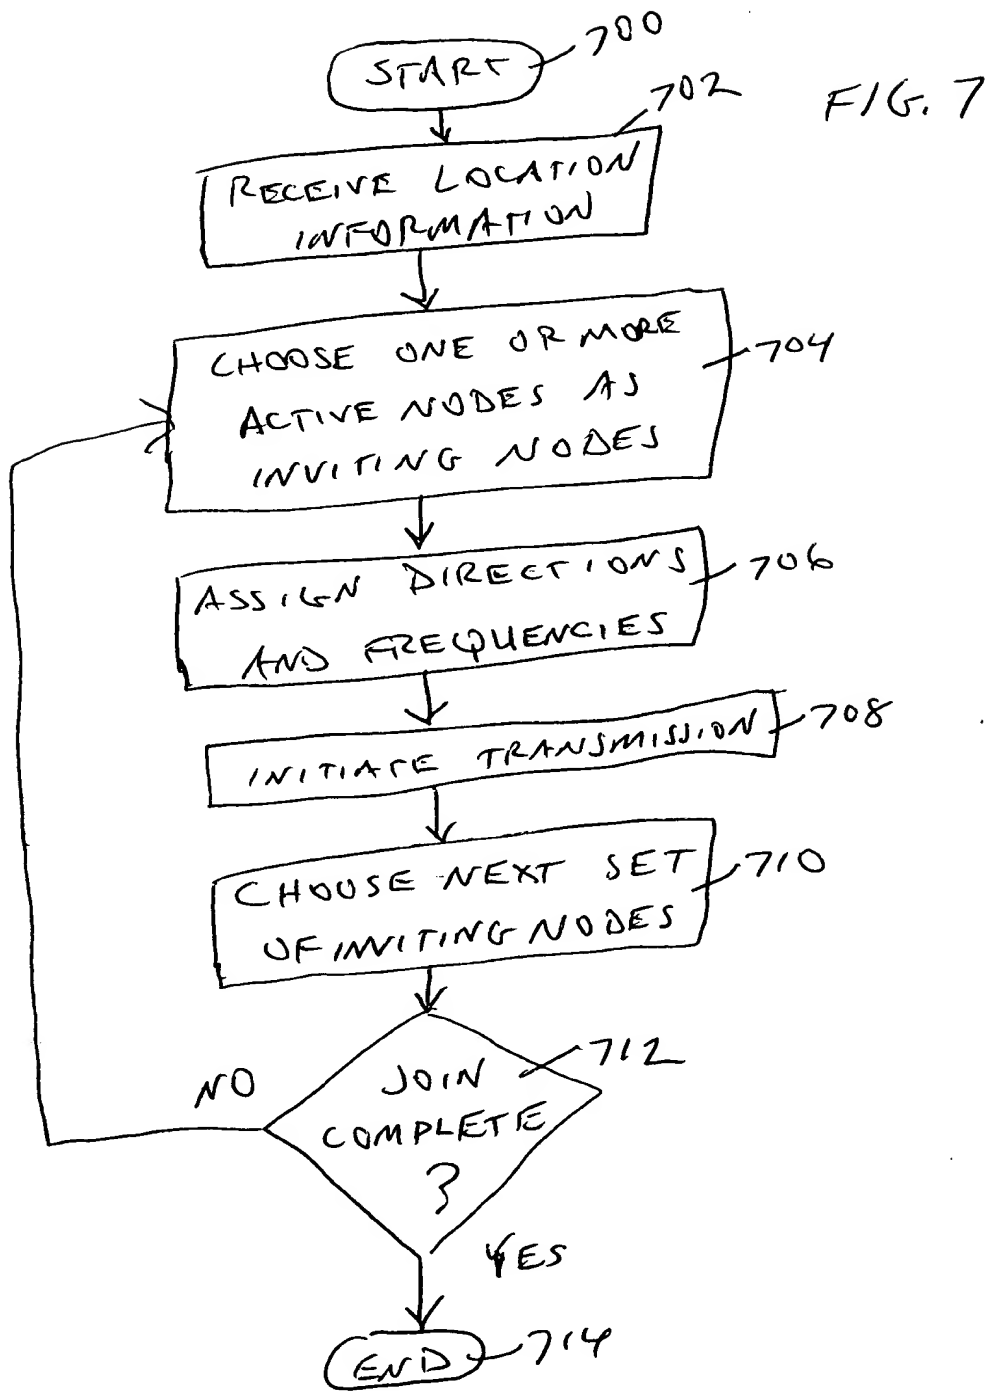 START
700
FIG. 7
702
RECEIVE LOCATION
INFORMATION
CHOOSE ONE OR MORE
ACTIVE NODES AS
INVITING NODES
704
ASSIGN DIRECTIONS
AND FREQUENCIES
706
INITIATE TRANSMISSION
708
CHOOSE NEXT SET
OF INVITING NODES
710
JOIN
COMPLETE
?
712
NO
YES
END
714